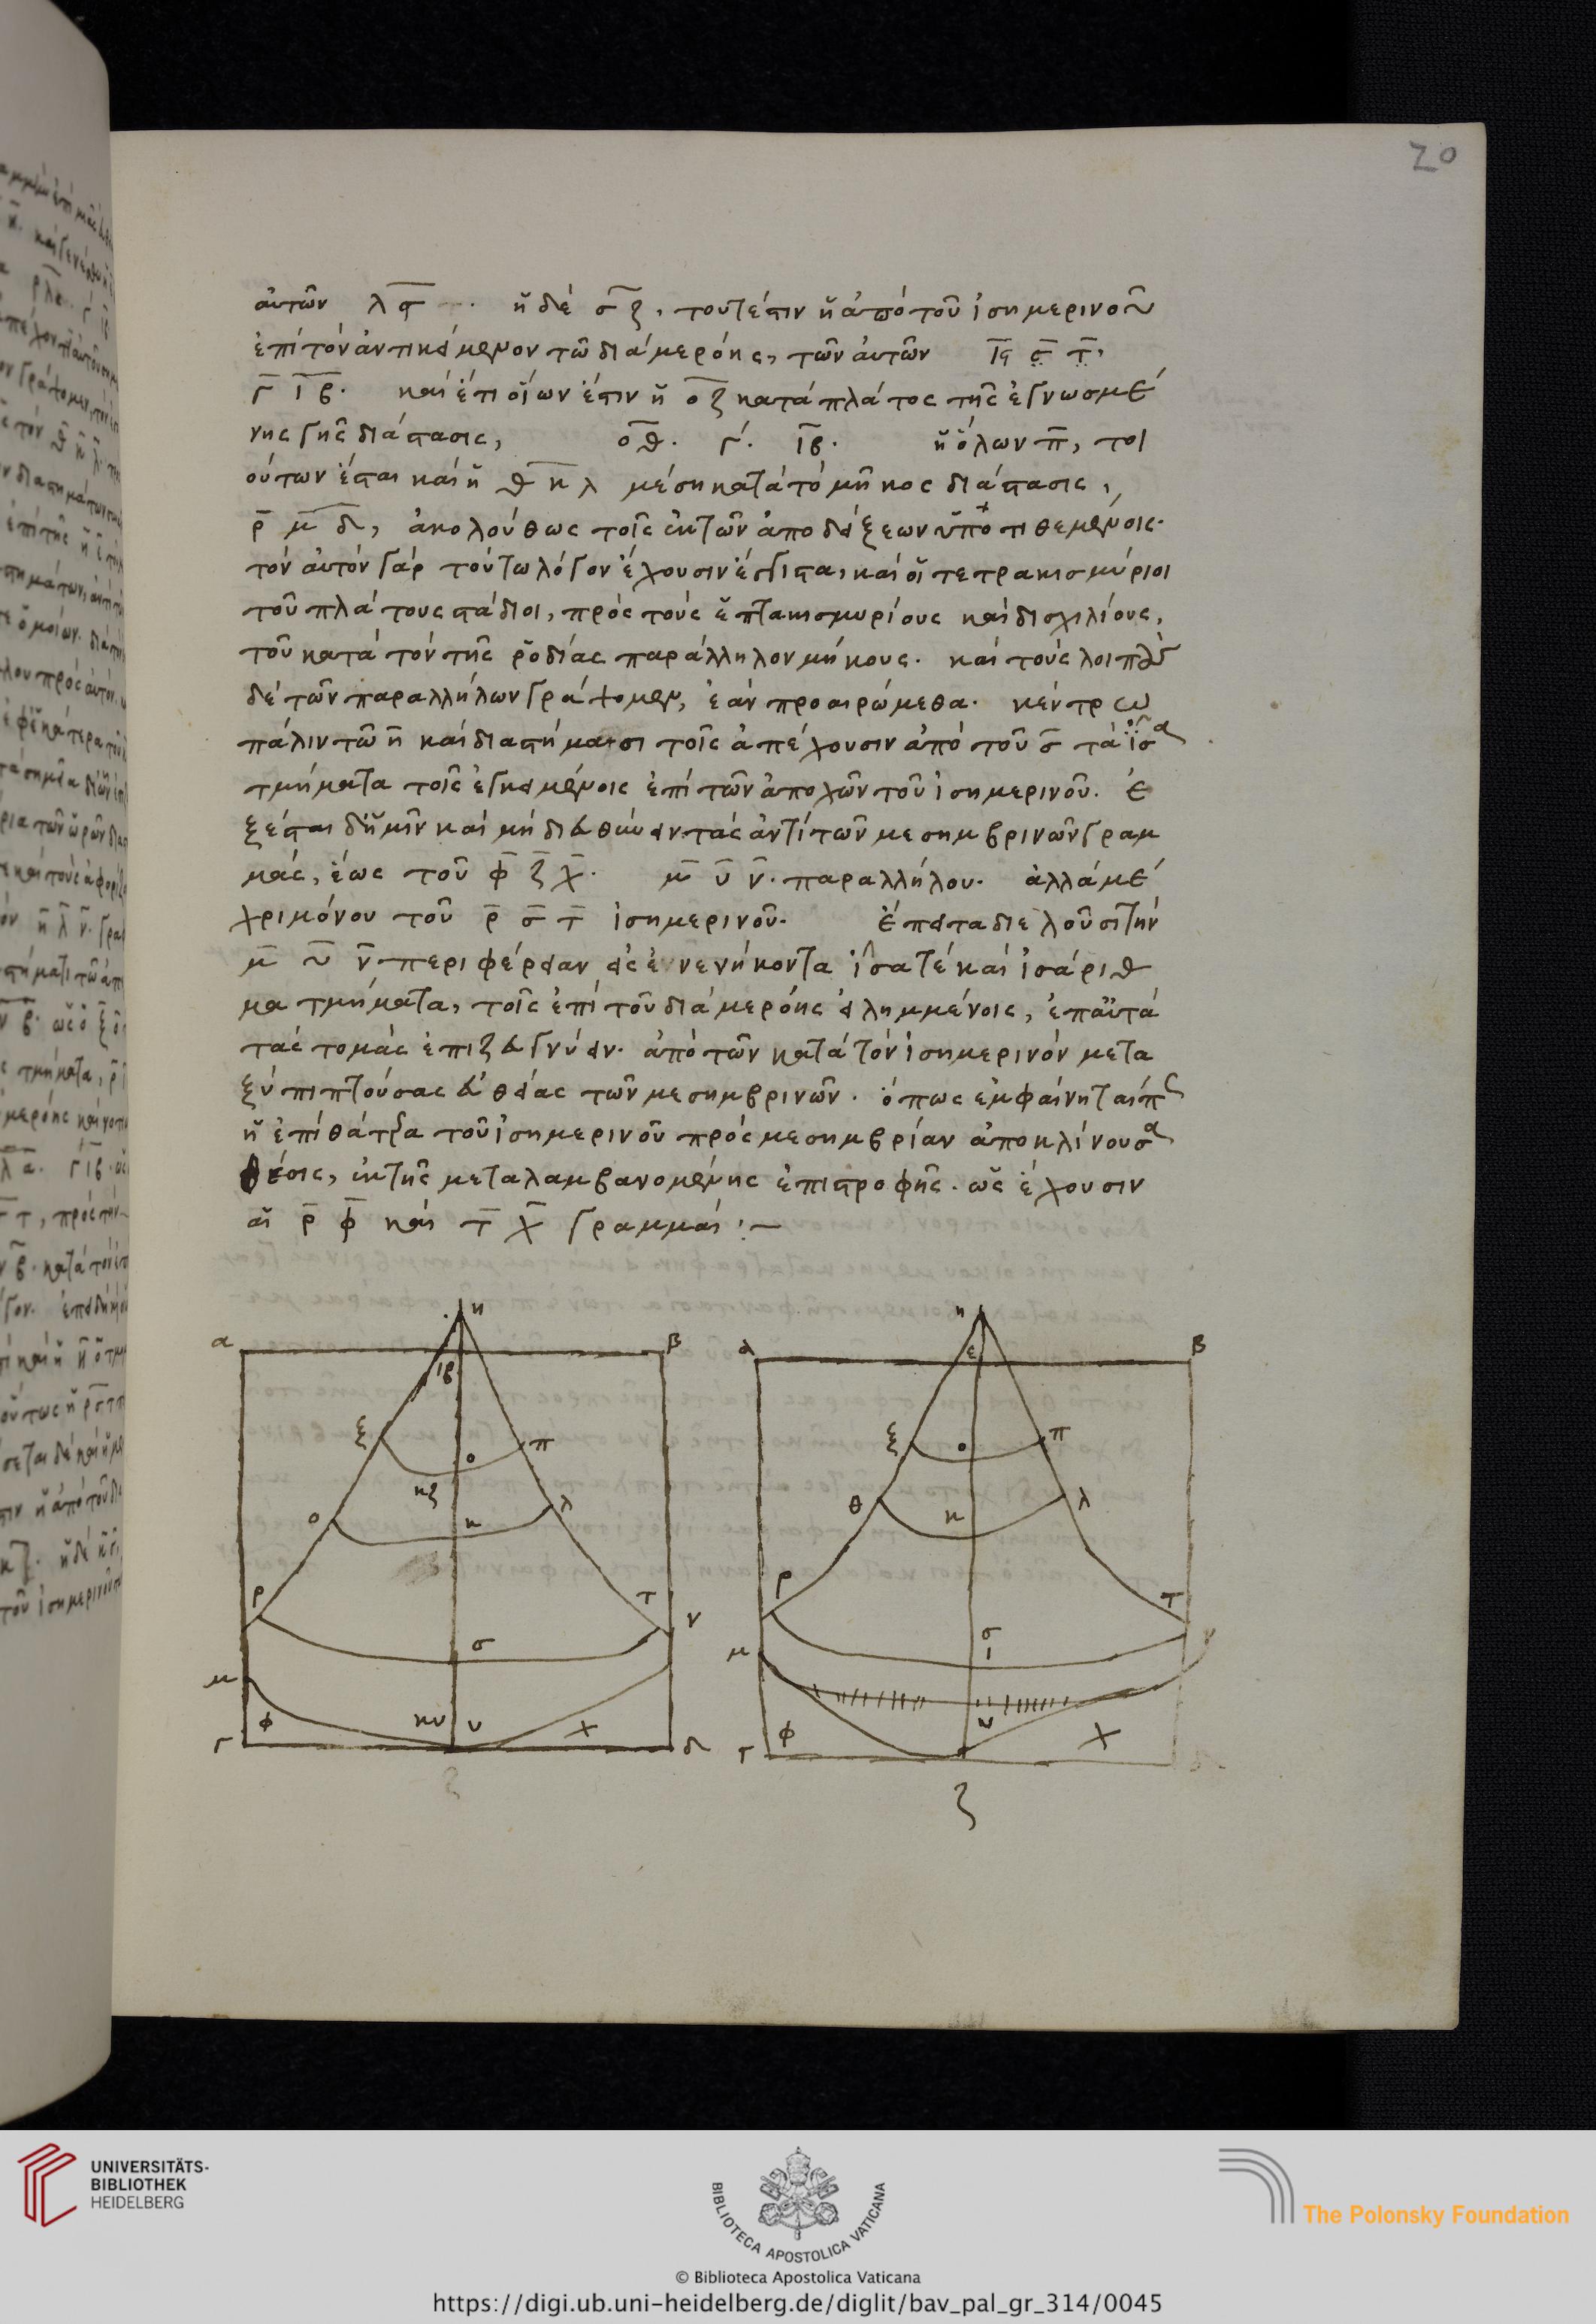 20
αὐτῶν λϛ ἡ δὲ σζ, τουτέστιν ἡ ἀπὸ τοῦ ἰσημερινοῦ
ἐπὶ τὸν ἀντικείμενον τῶ διὰ μερόης, τῶν αὐτῶν
γ ιβ. καὶ ἔτι οἵων ἐστὶν ἡ οζ κατὰ πλάτος τῆς ἐγνωσμέ
νης γῆς διάστασις, οθ. γ. ιβ. ἡ ὅλων π, τοι
ούτων ἔσται καὶ ἡ θ κ λ μέση κατὰ τὸ μῆκος διάστασις,
ρ μ δ, ἀκολούθως τοῖς ἐκ τῶν ἀποδείξεων ὑποτιθεμένοις.
τὸν αὐτὸν γὰρ λόγον ἔχουσιν ἔγγιστα, καὶ οἱ τετρακισμύριοι
τοῦ πλάτους στάδιοι, πρὸς τοὺς ἑπτακισμυρίους καὶ δισχιλίους,
τοῦ κατὰ τὸν τῆς ῥοδίας παράλληλον μήκους. καὶ τοὺς λοιποὺς
δὲ τῶν παραλλήλων γράψομεν, ἐὰν προαιρώμεθα. κέντρω
πάλιν τῶ η καὶ διαστήμασι τοῖς ἀπέχουσιν ἀπὸ τοῦ σ τὰ ἴσα
τμήματα τοῖς ἐγκειμένοις ἐπὶ τῶν ἀποχῶν τοῦ ἰσημερινοῦ. ἐ
ξέσται δ' ἡμῖν καὶ μὴ δι' εὐθείων τὰς ἀντὶ τῶν μεσημβρινῶν γραμ
μὰς, ἕως τοῦ φ ζ χ. μ υ ν. παραλλήλου. ἀλλὰ μέ
χρι μόνου τοῦ ρ σ τ ἰσημερινοῦ. ἔπειτα διελοῦσι τὴν
μ υ ν περιφέρειαν εἰς ἐννενήκοντα ἴσα τὲ καὶ ἰσάριθ
μα τμήματα, τοῖς ἐπὶ τοῦ διὰ μερόης εἰλημμένοις, ἐπ' αὐτὰ
τὰς τομὰς ἐπιζευγνύειν. ἀπὸ τῶν κατὰ τὸν ἰσημερινὸν μετα
ξὺ πιπτούσας εὐθείας τῶν μεσημβρινῶν. ὅπως ἐμφαίνηται πως
ἡ ἐπὶ θάτερα τοῦ ἰσημερινοῦ πρὸς μεσημβρίαν ἀποκλίνουσα
θέσις, ἐκ τῆς μεταλαμβανομένης ἐπιστροφῆς. ὡς ἔχουσιν
αἱ ρ φ καὶ τ χ γραμμαί:-
α η β
ιβ
ξ ο π
κζ
ο κ λ
ρ τ
σ ν
μ
φ κυ υ χ
γ δ
ζ
α η β
ε
ξ ο π
θ κ λ
ρ τ
σ
μ ν
φ υ χ
γ δ
ζ
UNIVERSITÄTS-
BIBLIOTHEK
HEIDELBERG
BIBLIOTECA APOSTOLICA VATICANA
The Polonsky Foundation
© Biblioteca Apostolica Vaticana
https://digi.ub.uni-heidelberg.de/diglit/bav_pal_gr_314/0045